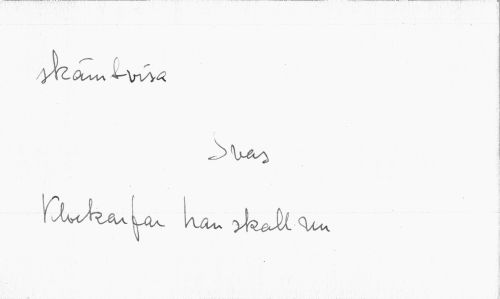 skämtvisa
Svas
Klockarfar han skall un